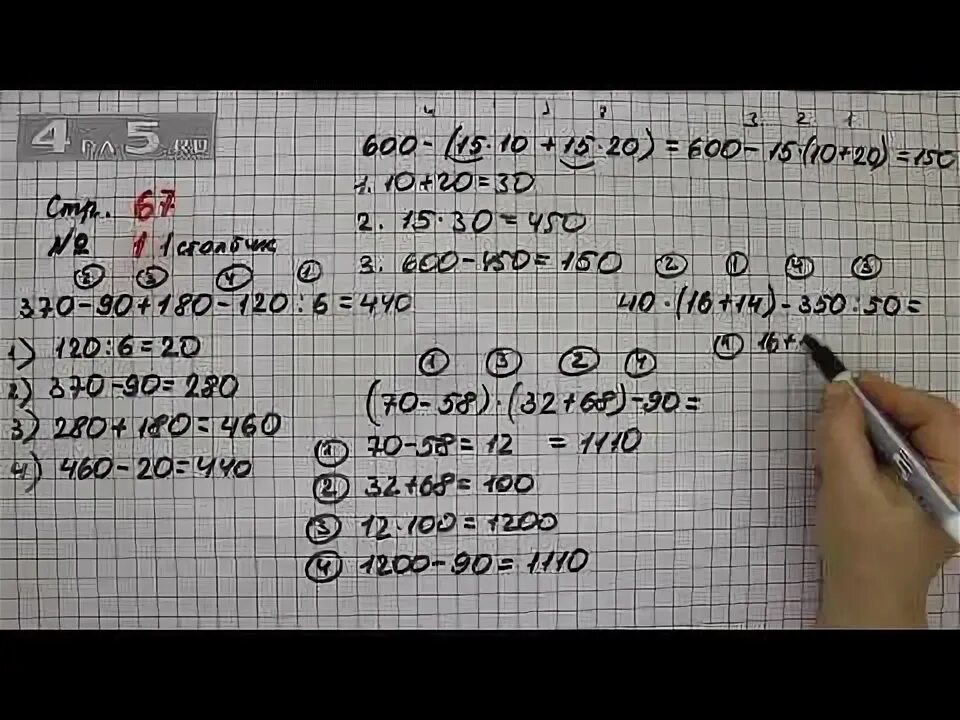 4 гл 5.ru
Стр. 67
№2 1 1 столбик
② ③ ④ ①
370-90+180-120:6=440
1) 120:6=20
2) 370-90=280
3) 280+180=460
4) 460-20=440
600-(15·10+15·20)=600-15·(10+20)=150
3 2 1
1. 10+20=30
2. 15·30=450
3. 600-450=150
① ③ ② ④
(70-58)·(32+68)-90=
① 70-58=12 =1110
② 32+68=100
③ 12·100=1200
④ 1200-90=1110
② ① ④ ③
40·(16+14)-350:50=
① 16+